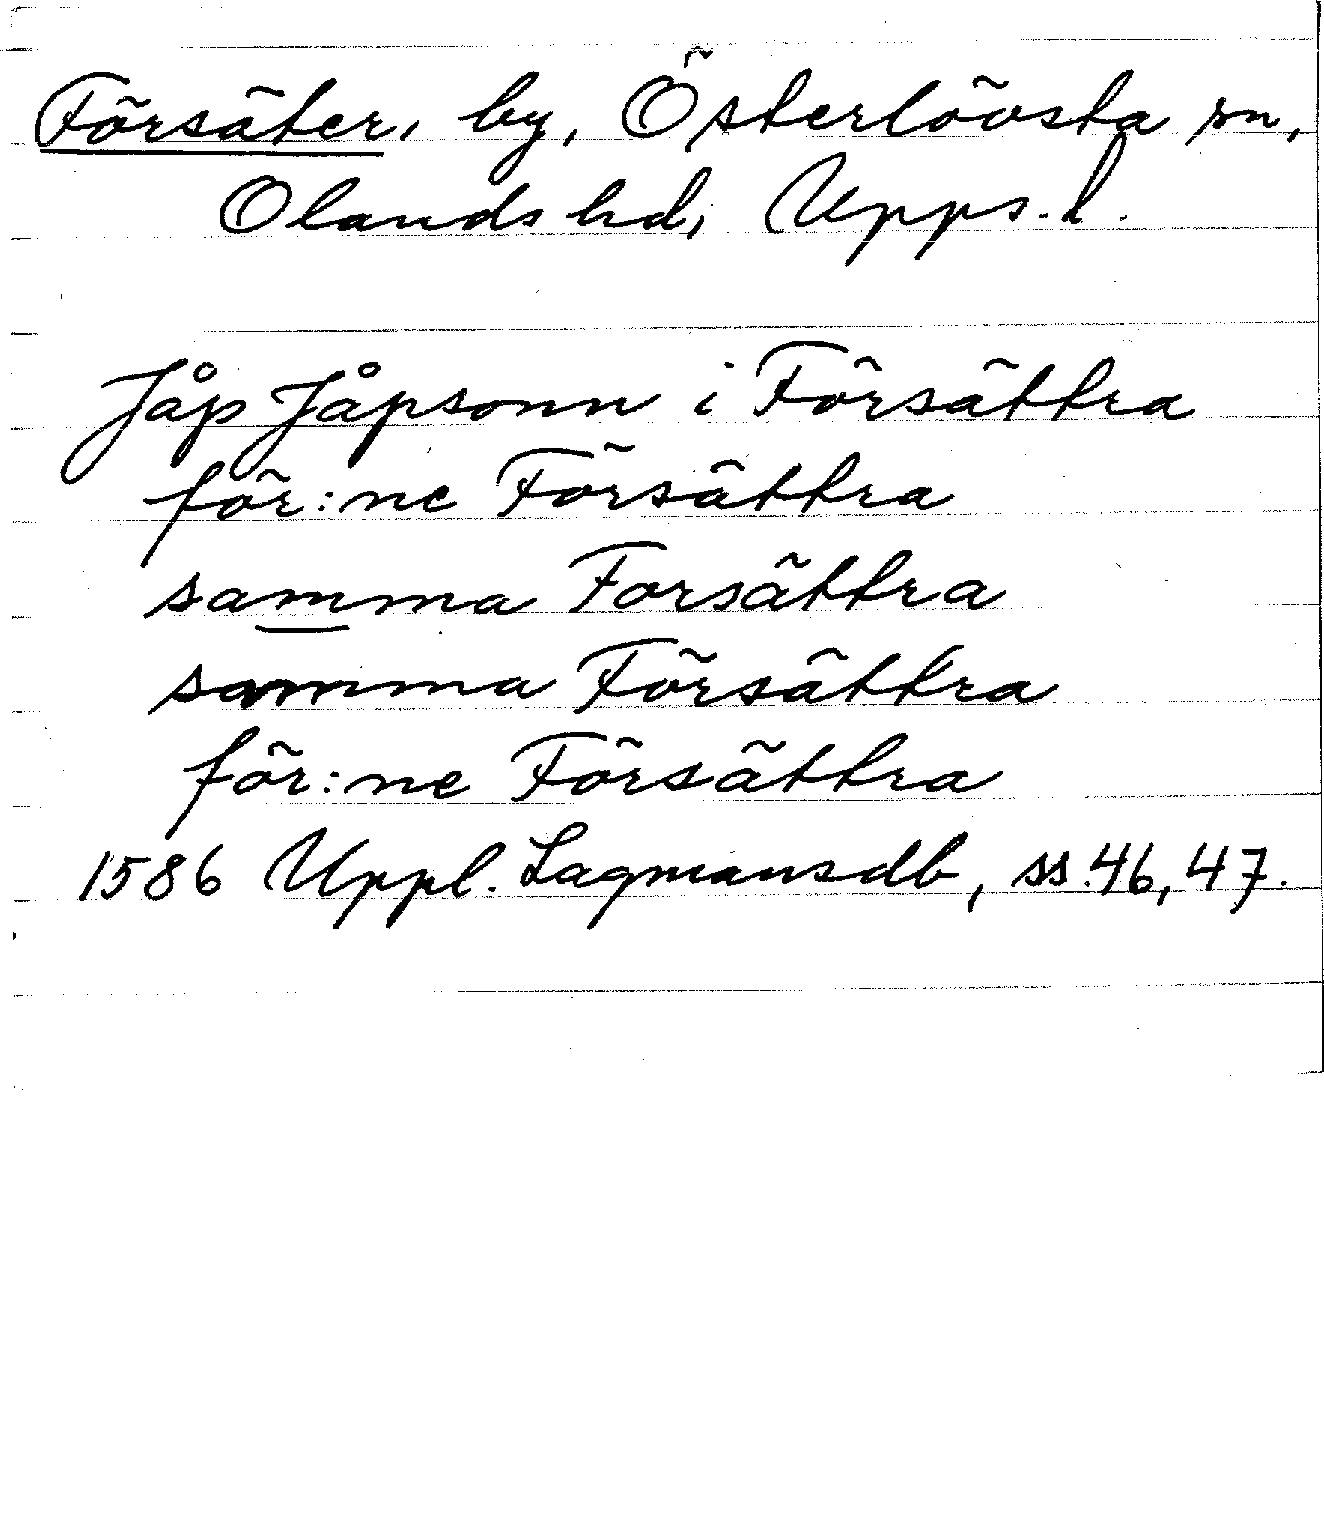 Försäter, by, Österlövsta sn,
Olands hd, Upps. l.
Jåp Jåpsonn i Försättra
för:ne Försättra
samma Forsättra
samma Försättra
för:ne Försättra
1586 Uppl. Lagmansdb, ss. 46, 47.